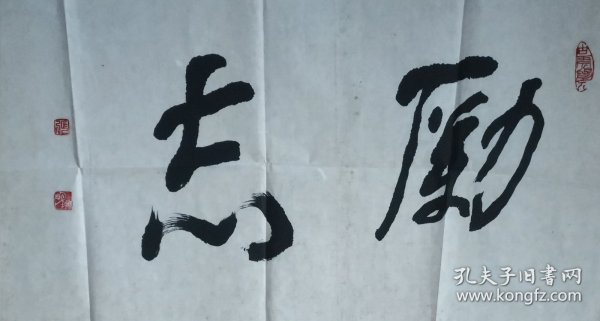 励志
孔夫子旧书网
www.kongfz.com